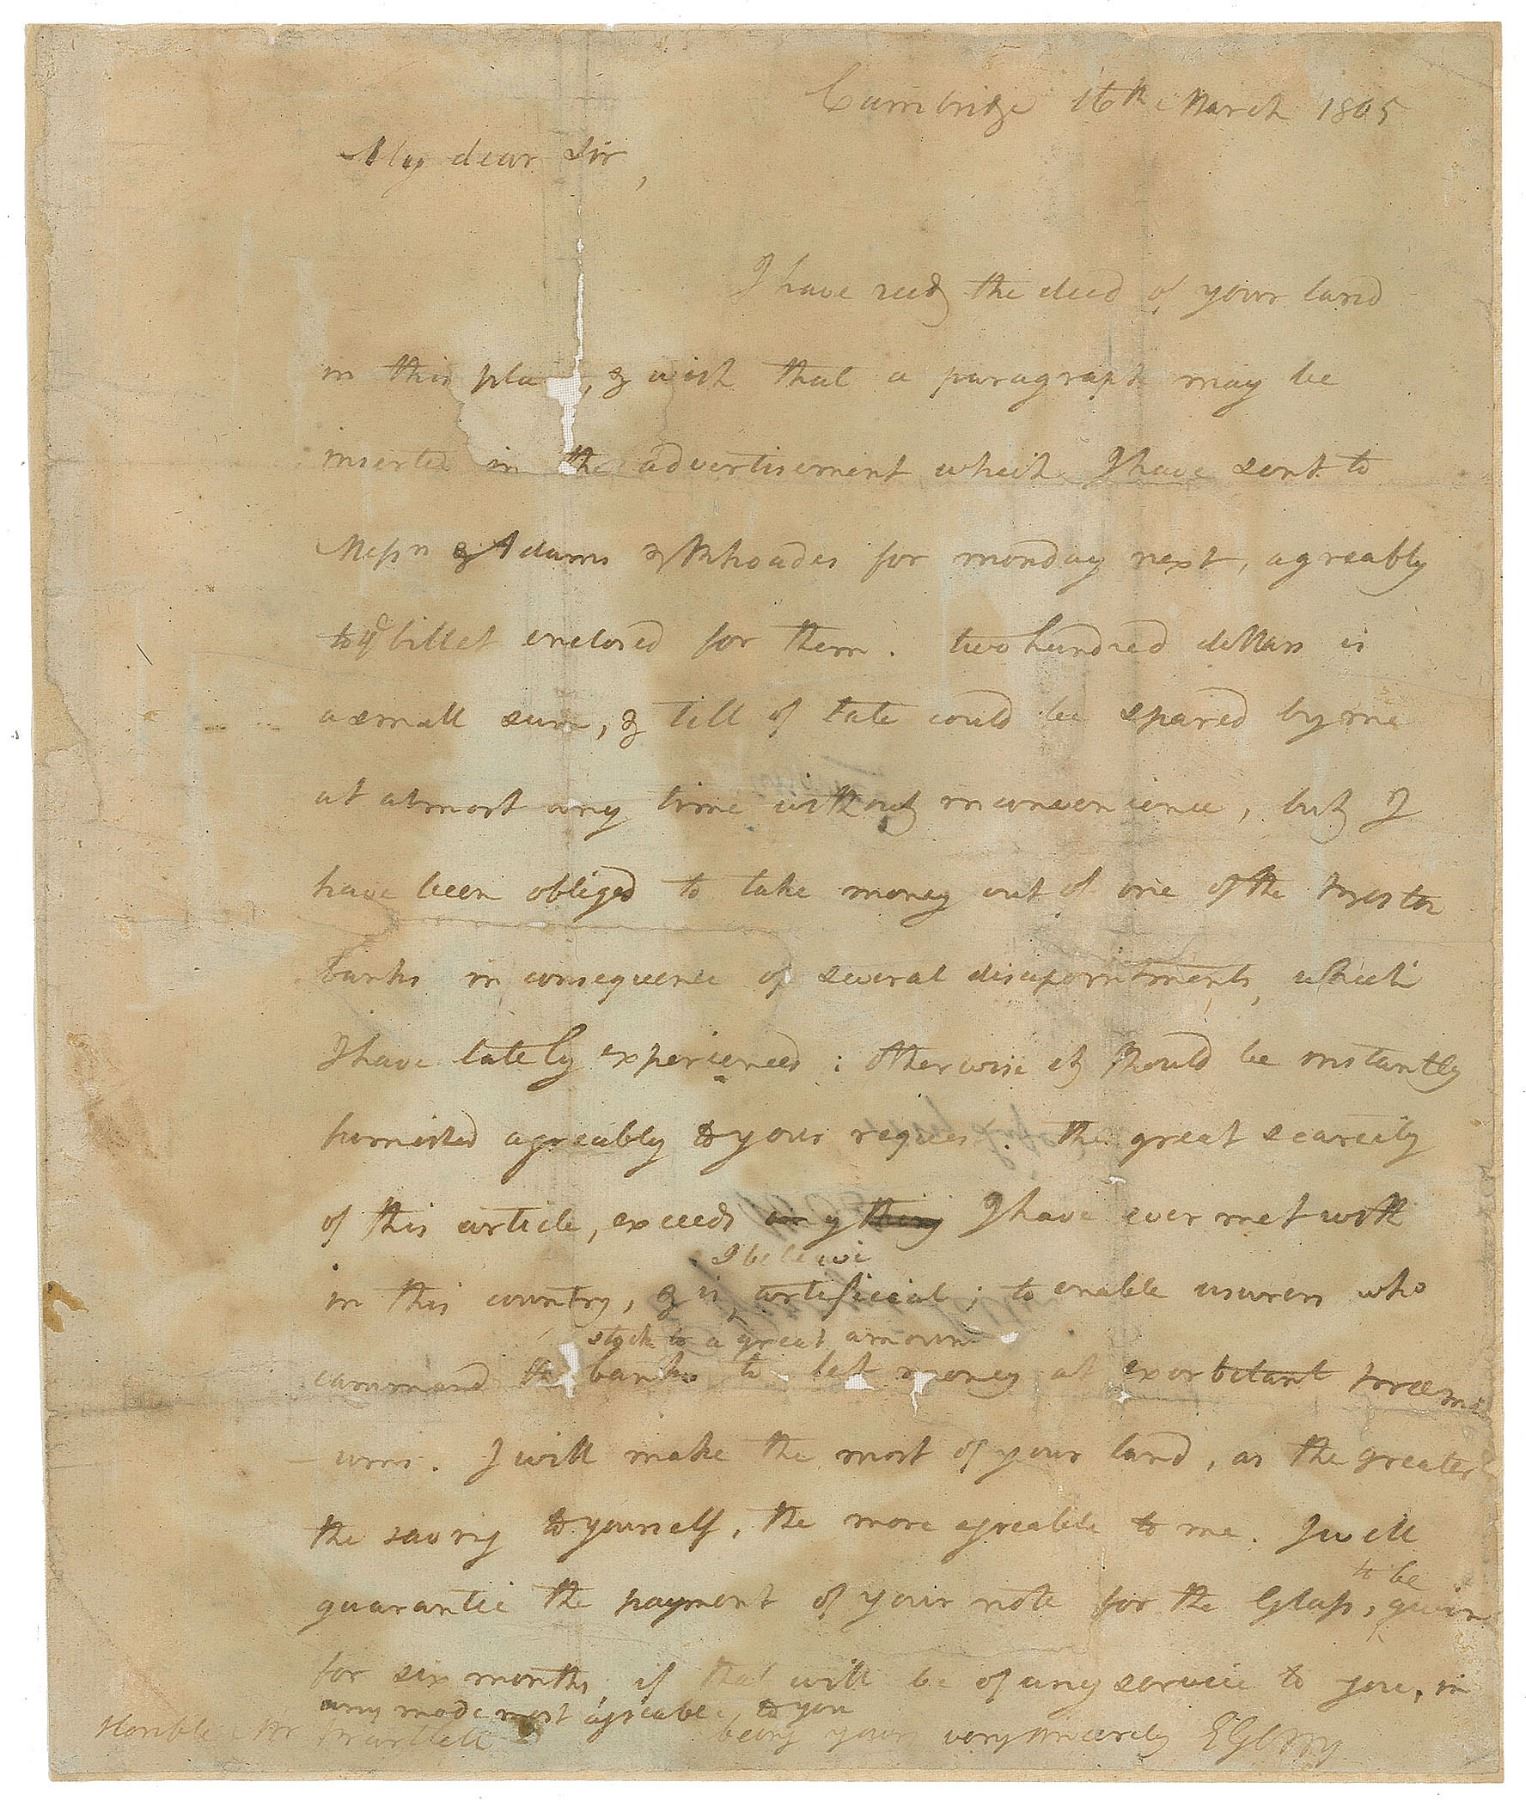 Cambridge 16th March 1805
My dear Sir,
I have recd the deed of your land
in this pla , & wish that a paragraph may be
inserted in the advertisement which I have sent to
Messrs Adams & Rhoades for monday next, agreably
to ye billet enclosed for them. two hundred dollars is
a small sum, & till of late could be spared by me
at almost any time without inconvenience, but I
have been obliged to take money out of one of the Boston
banks in consequence of several disapointments, which
I have lately experienced: otherwise it should be instantly
furnished agreably to your reques . the great scarcity
of this article, exceeds any thing I have ever met with
I believe
in this country, & is artificial; to enable usurers who
stock to a great amount
command the banks to let money at exorbitant premi
ums. I will make the most of your land, as the greater
the saving to yourself, the more agreable to me. I will
to be
guarantie the payment of your note for the Glass, given
for six months, if that will be of any service to you, in
any mode most agreable to you
Honble Mr Bartlett being yours very sincerely E Gerry